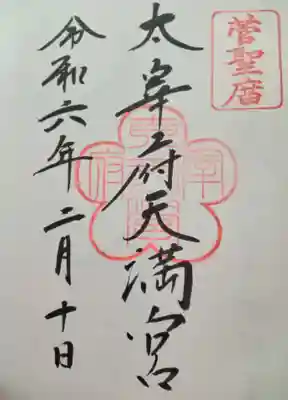 菅聖庿
太宰府天満宮
令和六年二月十日